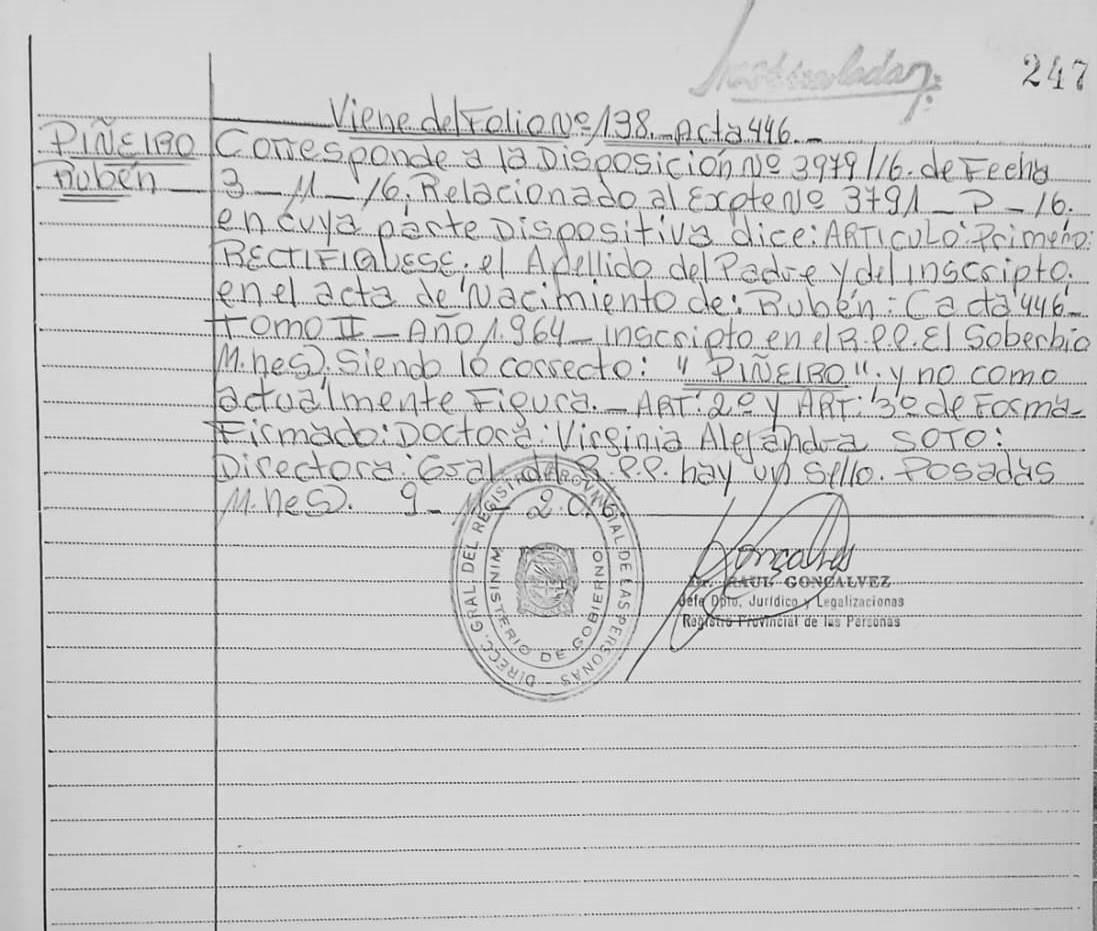 247
Viene del Folio Nº 138. Acta 446.-
PIÑEIRO
Rubén
Corresponde a la Disposición Nº 3979/16. de Fecha
3-11-16. Relacionado al Expte Nº 3791-P-16.
en cuya parte Dispositiva dice: ARTICULO Primero:
RECTIFIQUESE: el Apellido del Padre y del inscripto.
en el acta de Nacimiento de: Rubén: Cacta 446-
Tomo II - Año 1.964 - inscripto en el R.P.P. El Soberbio
M.nes). Siendo lo correcto: "PIÑEIRO". y no como
actualmente Figura.- ART: 2º y ART: 3º de Forma-
Firmado: Doctora: Virginia Alejandra SOTO:
Directora: Gral. del R.P.P. hay un sello. Posadas
M.nes). 9-11-2.016.
DIRECC. GRAL. DEL REGISTRO PROVINCIAL DE LAS PERSONAS -
MINISTERIO DE GOBIERNO
Dr. RAUL GONCALVEZ
Jefe Dpto. Jurídico y Legalizaciones
Registro Provincial de las Personas